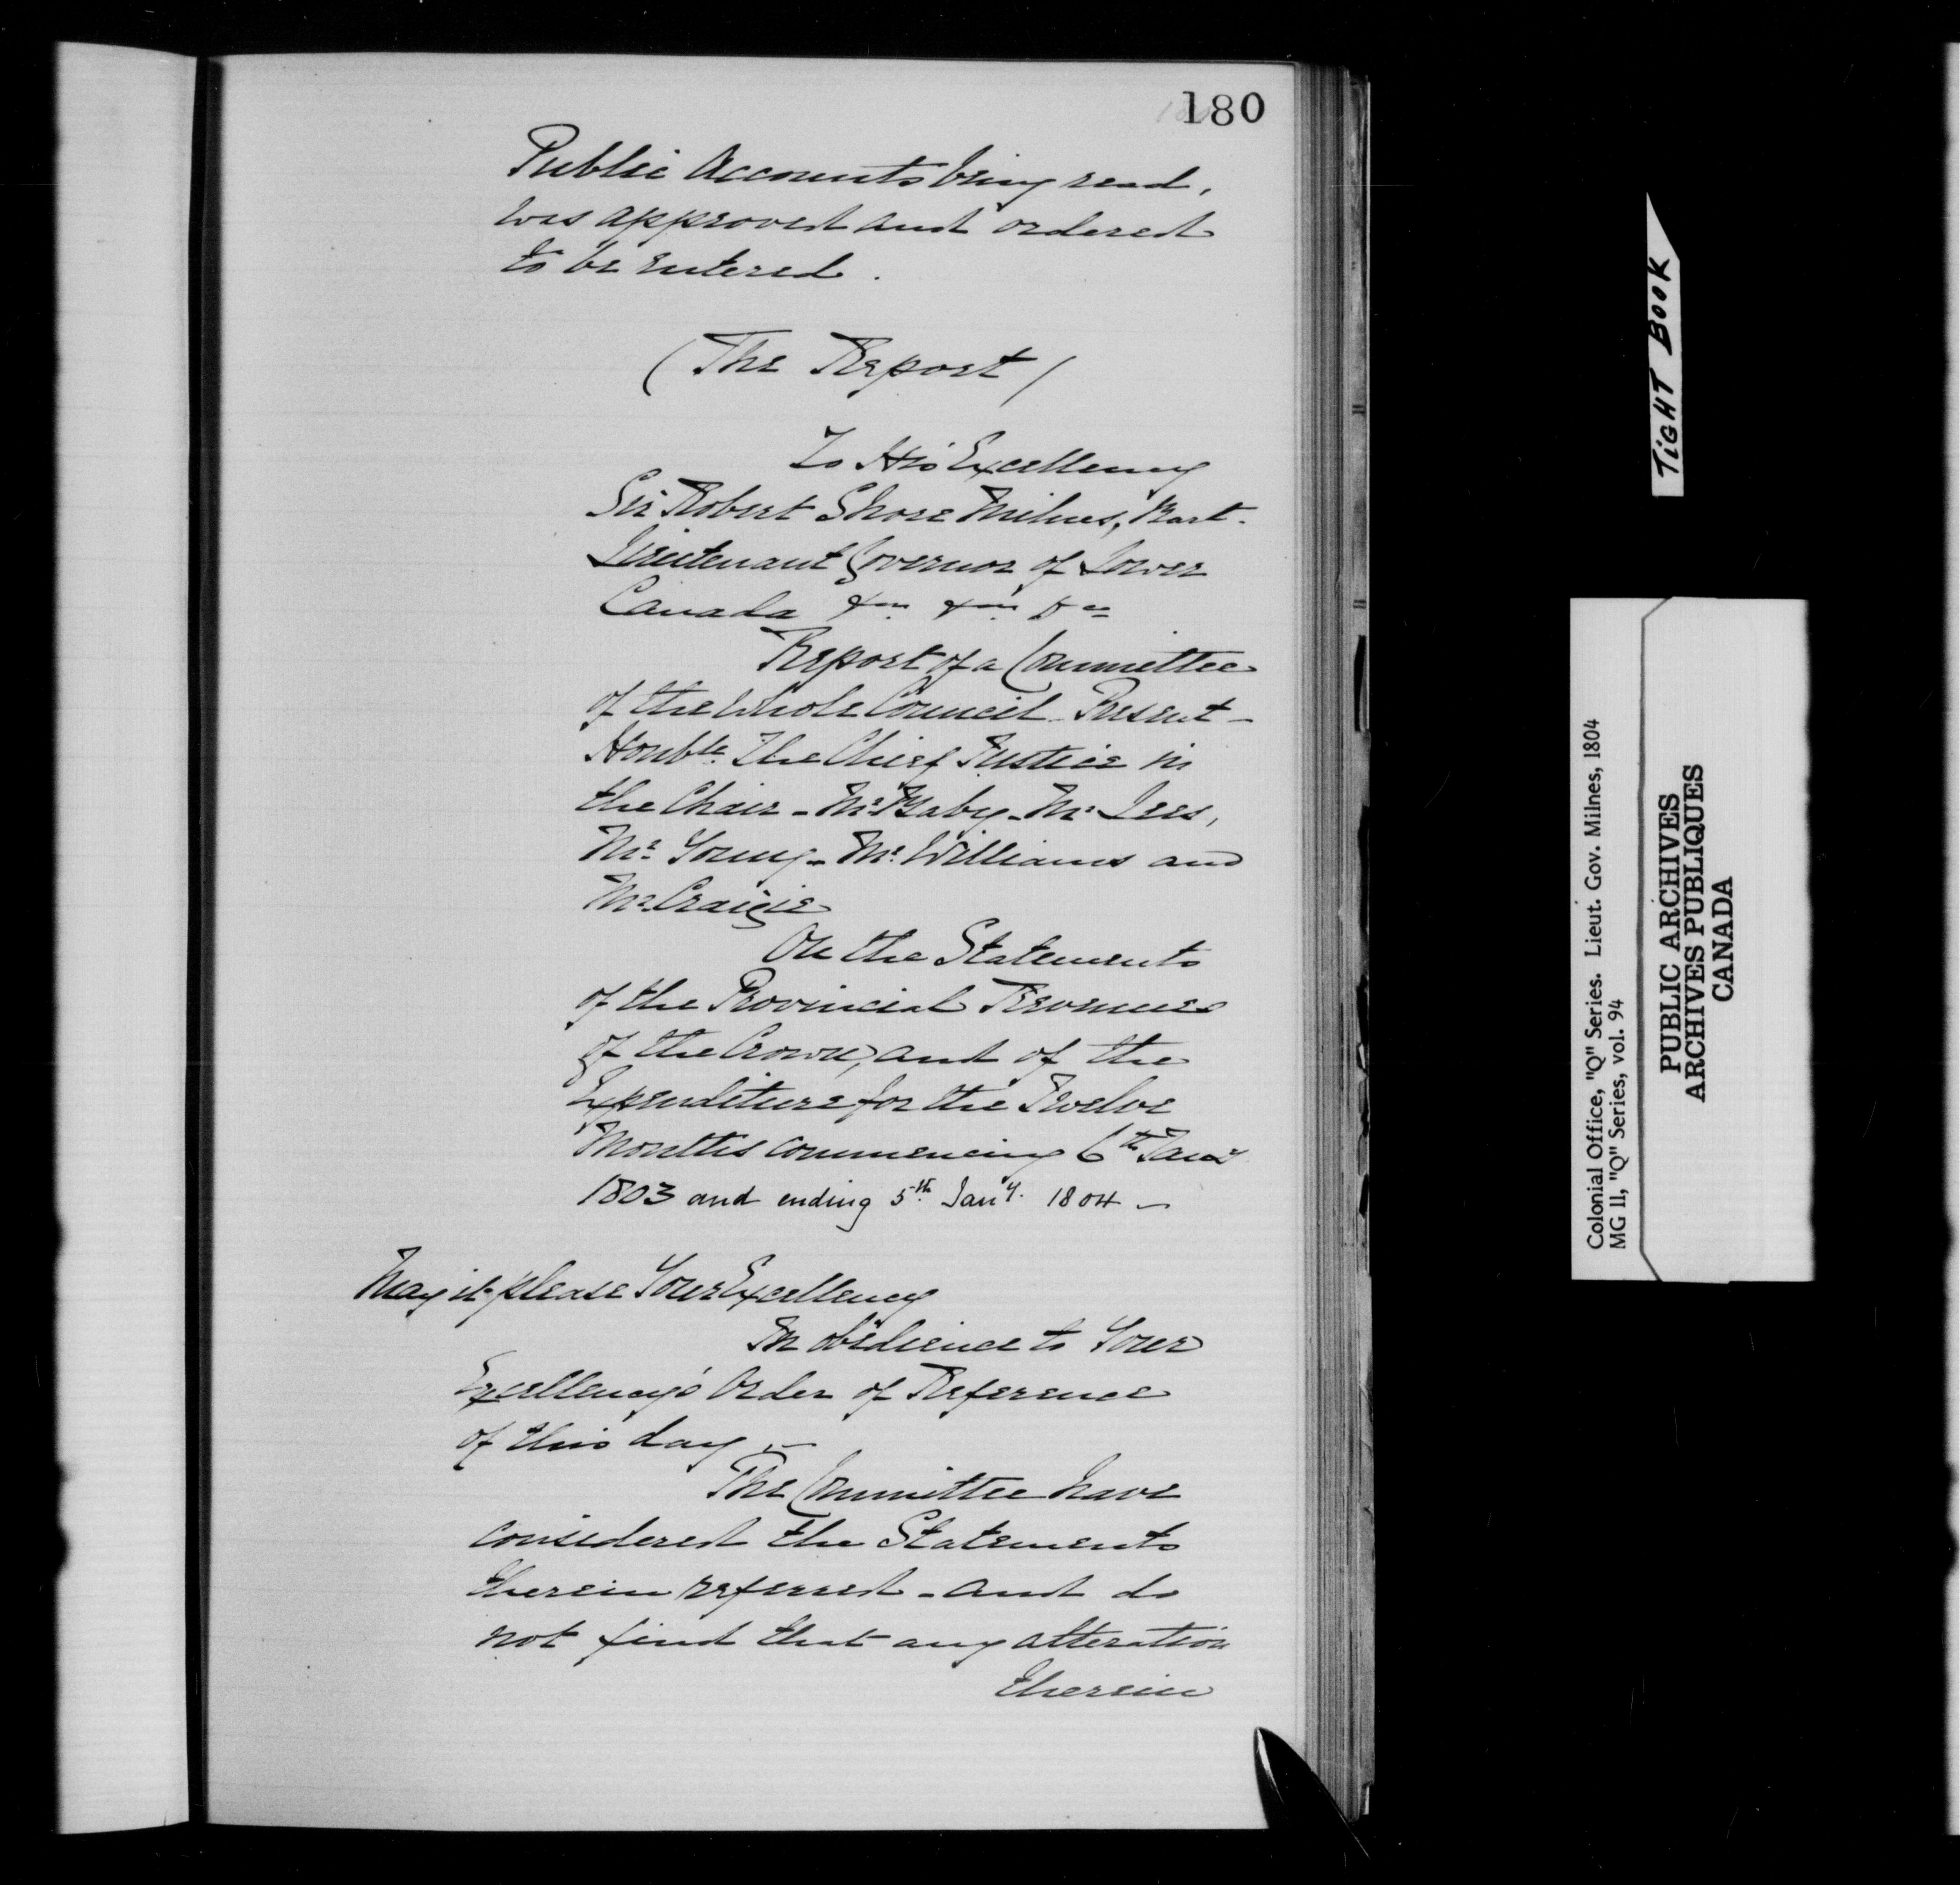 180
Public Accounts being read,
was approved and ordered
to be entered.
(The Report)
To His Excellency
Sir Robert Shore Milnes, Bart.
Lieutenant Governor of Lower
Canada &c &c &c
Report of a Committee
of the whole Council - Present -
Honble. The Chief Justice in
the Chair - Mr. Baby - Mr. Lees,
Mr. Young - Mr. Williams and
Mr. Craigie
On the Statements
of the Provincial Revenues
of the Crown, and of the
Expenditure for the Twelve
Months commencing 6th Jany
1803 and ending 5th Jany. 1804 -
May it please Your Excellency
In obedience to Your
Excellency's Order of Reference
of this day -
The Committee have
considered the Statements
therein referred - and do
not find that any alteration
therein
TIGHT BOOK
Colonial Office, "Q" Series. Lieut. Gov. Milnes, 1804
MG 11, "Q" Series, vol. 94
PUBLIC ARCHIVES
ARCHIVES PUBLIQUES
CANADA